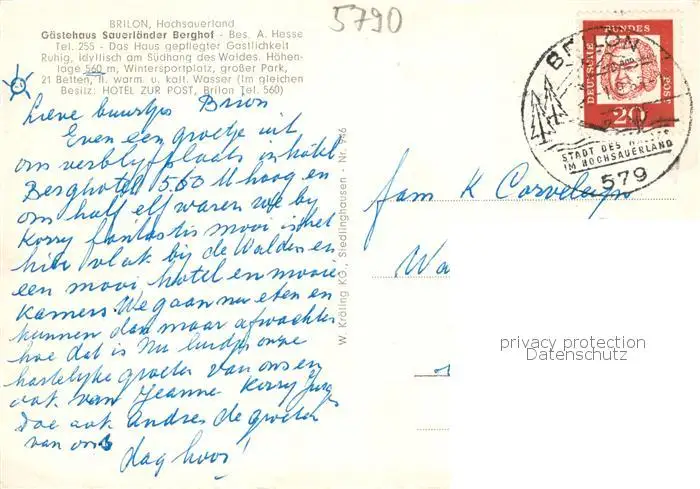 5790
BRILON, Hochsauerland
Gästehaus Sauerländer Berghof - Bes. A. Hesse
Tel. 255 - Das Haus gepflegter Gastlichkeit
Ruhig, idyllisch am Südhang des Waldes. Höhen-
lage 560 m, Wintersportplatz, großer Park,
21 Betten, fl. warm. u. kalt. Wasser (Im gleichen
Besitz: HOTEL ZUR POST, Brilon Tel. 560)
Lieve buurtjes Brion
Even een groetje uit
ons verblyfplaats in hótel
Berghotel 560 M hoog en
om half elf waren we by
Korry fantastis mooi is het
hier vlak bij de Walden en
een mooi hotel en mooie
kamers. We gaan nu eten en
kunnen dan maar afwachten
hoe dat is Nu luidjes onze
hartelyke groeten van ons en
ook van Jeanne Korry
Doe ook andres de groeten
van ons
dag hoor!
W. Kröling KG., Siedlinghausen - Nr. 946
DEUTSCHE BUNDESPOST
20
BRILON
STADT DES WALDES
IM HOCHSAUERLAND
579
fam K
Wa
privacy protection
Datenschutz